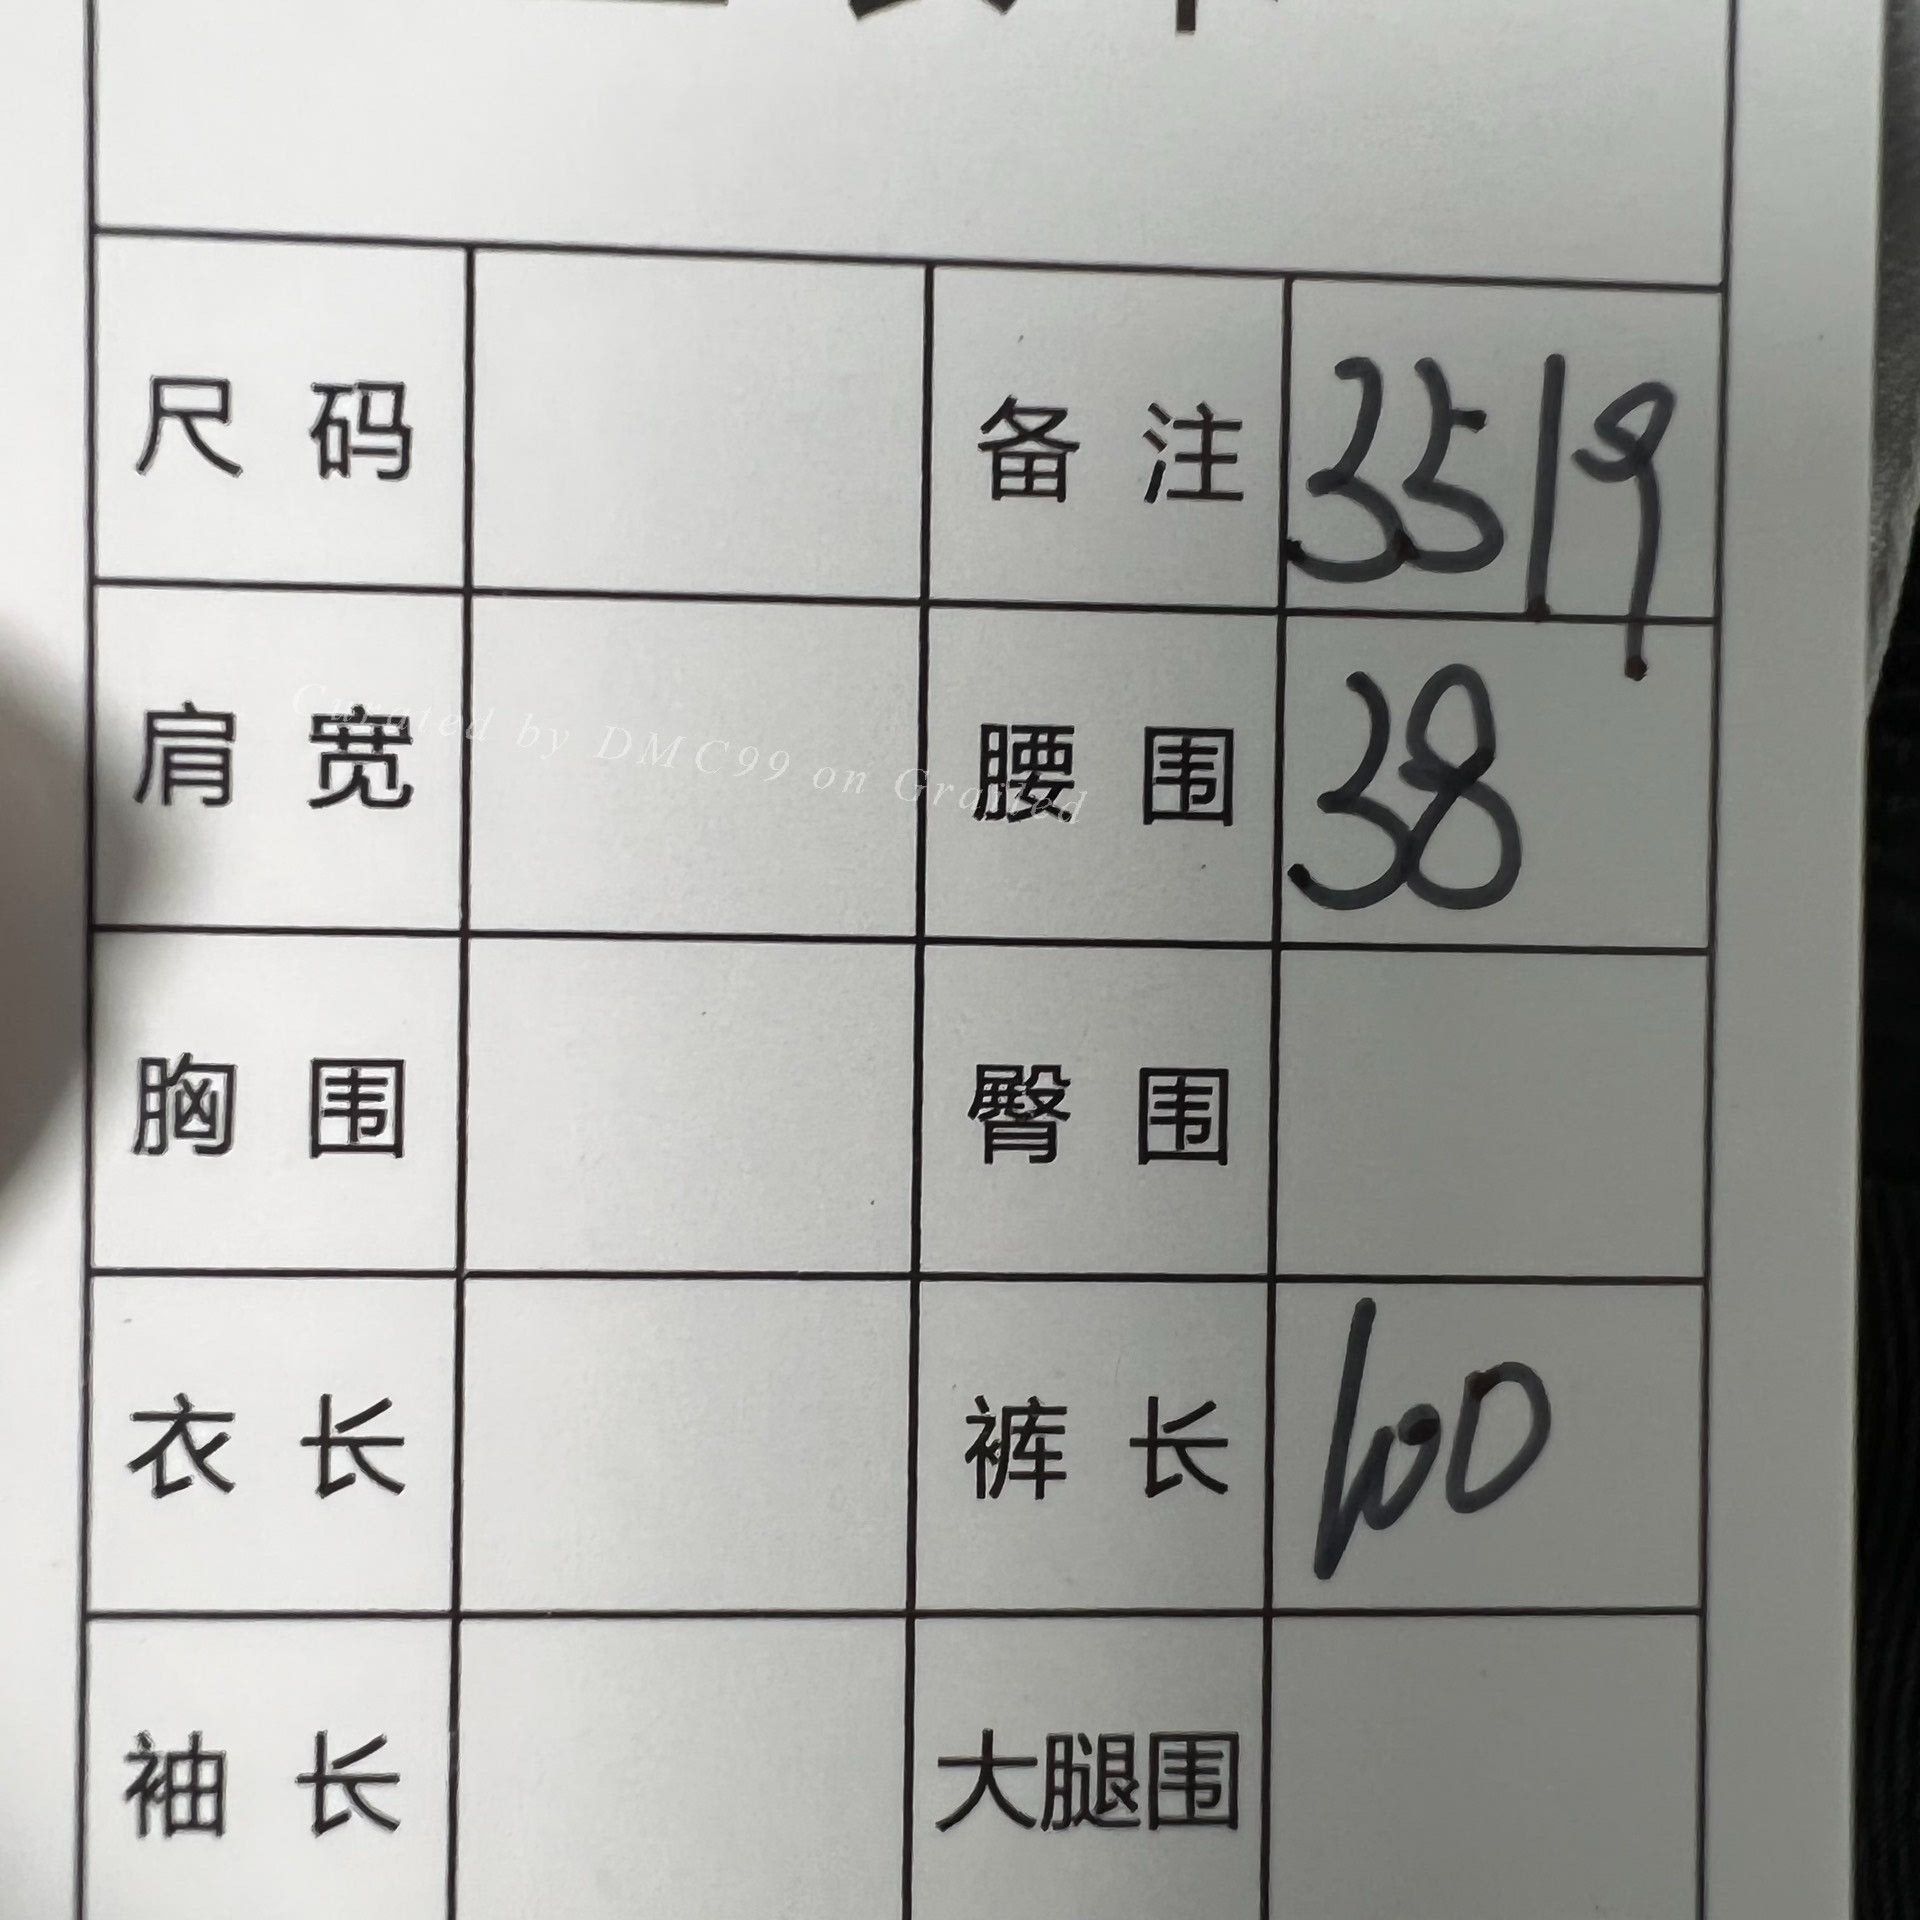 尺码 备注 3519
肩宽 腰围 38
Curated by DMC99 on Grailed
胸围 臀围
衣长 裤长 100
袖长 大腿围